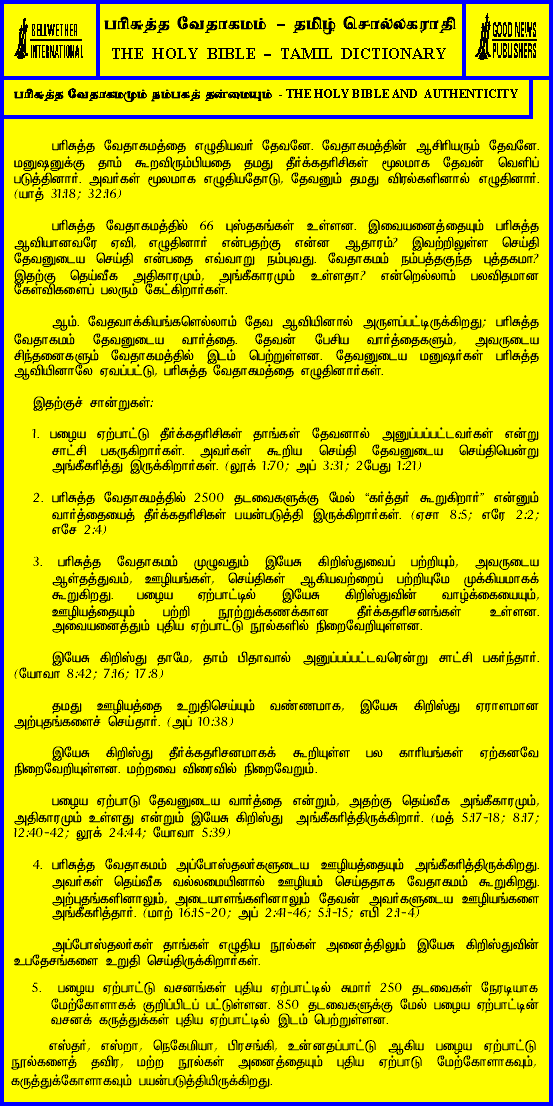 BELLWETHER
INTERNATIONAL
பரிசுத்த வேதாகமம் – தமிழ் சொல்லகராதி
THE HOLY BIBLE – TAMIL DICTIONARY
GOOD NEWS
PUBLISHERS
பரிசுத்த வேதாகமமும் நம்பகத் தன்மையும் - THE HOLY BIBLE AND AUTHENTICITY
பரிசுத்த வேதாகமத்தை எழுதியவர் தேவனே. வேதாகமத்தின் ஆசிரியரும் தேவனே.
மனுஷனுக்கு தாம் கூறவிரும்பியதை தமது தீர்க்கதரிசிகள் மூலமாக தேவன் வெளிப்
படுத்தினார். அவர்கள் மூலமாக எழுதியதோடு, தேவனும் தமது விரல்களினால் எழுதினார்.
(யாத் 31:18; 32:16)
பரிசுத்த வேதாகமத்தில் 66 புஸ்தகங்கள் உள்ளன. இவையனைத்தையும் பரிசுத்த
ஆவியானவரே ஏவி, எழுதினார் என்பதற்கு என்ன ஆதாரம்? இவற்றிலுள்ள செய்தி
தேவனுடைய செய்தி என்பதை எவ்வாறு நம்புவது. வேதாகமம் நம்பத்தகுந்த புத்தகமா?
இதற்கு தெய்வீக அதிகாரமும், அங்கீகாரமும் உள்ளதா? என்றெல்லாம் பலவிதமான
கேள்விகளைப் பலரும் கேட்கிறார்கள்.
ஆம். வேதவாக்கியங்களெல்லாம் தேவ ஆவியினால் அருளப்பட்டிருக்கிறது; பரிசுத்த
வேதாகமம் தேவனுடைய வார்த்தை. தேவன் பேசிய வார்த்தைகளும், அவருடைய
சிந்தனைகளும் வேதாகமத்தில் இடம் பெற்றுள்ளன. தேவனுடைய மனுஷர்கள் பரிசுத்த
ஆவியினாலே ஏவப்பட்டு, பரிசுத்த வேதாகமத்தை எழுதினார்கள்.
இதற்குச் சான்றுகள்:
1. பழைய ஏற்பாட்டு தீர்க்கதரிசிகள் தாங்கள் தேவனால் அனுப்பப்பட்டவர்கள் என்று
சாட்சி பகருகிறார்கள். அவர்கள் கூறிய செய்தி தேவனுடைய செய்தியென்று
அங்கீகரித்து இருக்கிறார்கள். (லூக் 1:70; அப் 3:31; 2பேது 1:21)
2. பரிசுத்த வேதாகமத்தில் 2500 தடவைகளுக்கு மேல் “கர்த்தர் கூறுகிறார்” என்னும்
வார்த்தையைத் தீர்க்கதரிசிகள் பயன்படுத்தி இருக்கிறார்கள். (ஏசா 8:5; எரே 2:2;
எசே 2:4)
3. பரிசுத்த வேதாகமம் முழுவதும் இயேசு கிறிஸ்துவைப் பற்றியும், அவருடைய
ஆள்தத்துவம், ஊழியங்கள், செய்திகள் ஆகியவற்றைப் பற்றியுமே முக்கியமாகக்
கூறுகிறது. பழைய ஏற்பாட்டில் இயேசு கிறிஸ்துவின் வாழ்க்கையையும்,
ஊழியத்தையும் பற்றி நூற்றுக்கணக்கான தீர்க்கதரிசனங்கள் உள்ளன.
அவையனைத்தும் புதிய ஏற்பாட்டு நூல்களில் நிறைவேறியுள்ளன.
இயேசு கிறிஸ்து தாமே, தாம் பிதாவால் அனுப்பப்பட்டவரென்று சாட்சி பகர்ந்தார்.
(யோவா 8:42; 7:16; 17:8)
தமது ஊழியத்தை உறுதிசெய்யும் வண்ணமாக, இயேசு கிறிஸ்து ஏராளமான
அற்புதங்களைச் செய்தார். (அப் 10:38)
இயேசு கிறிஸ்து தீர்க்கதரிசனமாகக் கூறியுள்ள பல காரியங்கள் ஏற்கனவே
நிறைவேறியுள்ளன. மற்றவை விரைவில் நிறைவேறும்.
பழைய ஏற்பாடு தேவனுடைய வார்த்தை என்றும், அதற்கு தெய்வீக அங்கீகாரமும்,
அதிகாரமும் உள்ளது என்றும் இயேசு கிறிஸ்து அங்கீகரித்திருக்கிறார். (மத் 5:17-18; 8:17;
12:40-42; லூக் 24:44; யோவா 5:39)
4. பரிசுத்த வேதாகமம் அப்போஸ்தலர்களுடைய ஊழியத்தையும் அங்கீகரித்திருக்கிறது.
அவர்கள் தெய்வீக வல்லமையினால் ஊழியம் செய்ததாக வேதாகமம் கூறுகிறது.
அற்புதங்களினாலும், அடையாளங்களினாலும் தேவன் அவர்களுடைய ஊழியங்களை
அங்கீகரித்தார். (மாற் 16:15-20; அப் 2:41-46; 5:1-15; எபி 2:1-4)
அப்போஸ்தலர்கள் தாங்கள் எழுதிய நூல்கள் அனைத்திலும் இயேசு கிறிஸ்துவின்
உபதேசங்களை உறுதி செய்திருக்கிறார்கள்.
5. பழைய ஏற்பாட்டு வசனங்கள் புதிய ஏற்பாட்டில் சுமார் 250 தடவைகள் நேரடியாக
மேற்கோளாகக் குறிப்பிடப் பட்டுள்ளன. 850 தடவைகளுக்கு மேல் பழைய ஏற்பாட்டின்
வசனக் கருத்துக்கள் புதிய ஏற்பாட்டில் இடம் பெற்றுள்ளன.
எஸ்தர், எஸ்றா, நெகேமியா, பிரசங்கி, உன்னதப்பாட்டு ஆகிய பழைய ஏற்பாட்டு
நூல்களைத் தவிர, மற்ற நூல்கள் அனைத்தையும் புதிய ஏற்பாடு மேற்கோளாகவும்,
கருத்துக்கோளாகவும் பயன்படுத்தியிருக்கிறது.